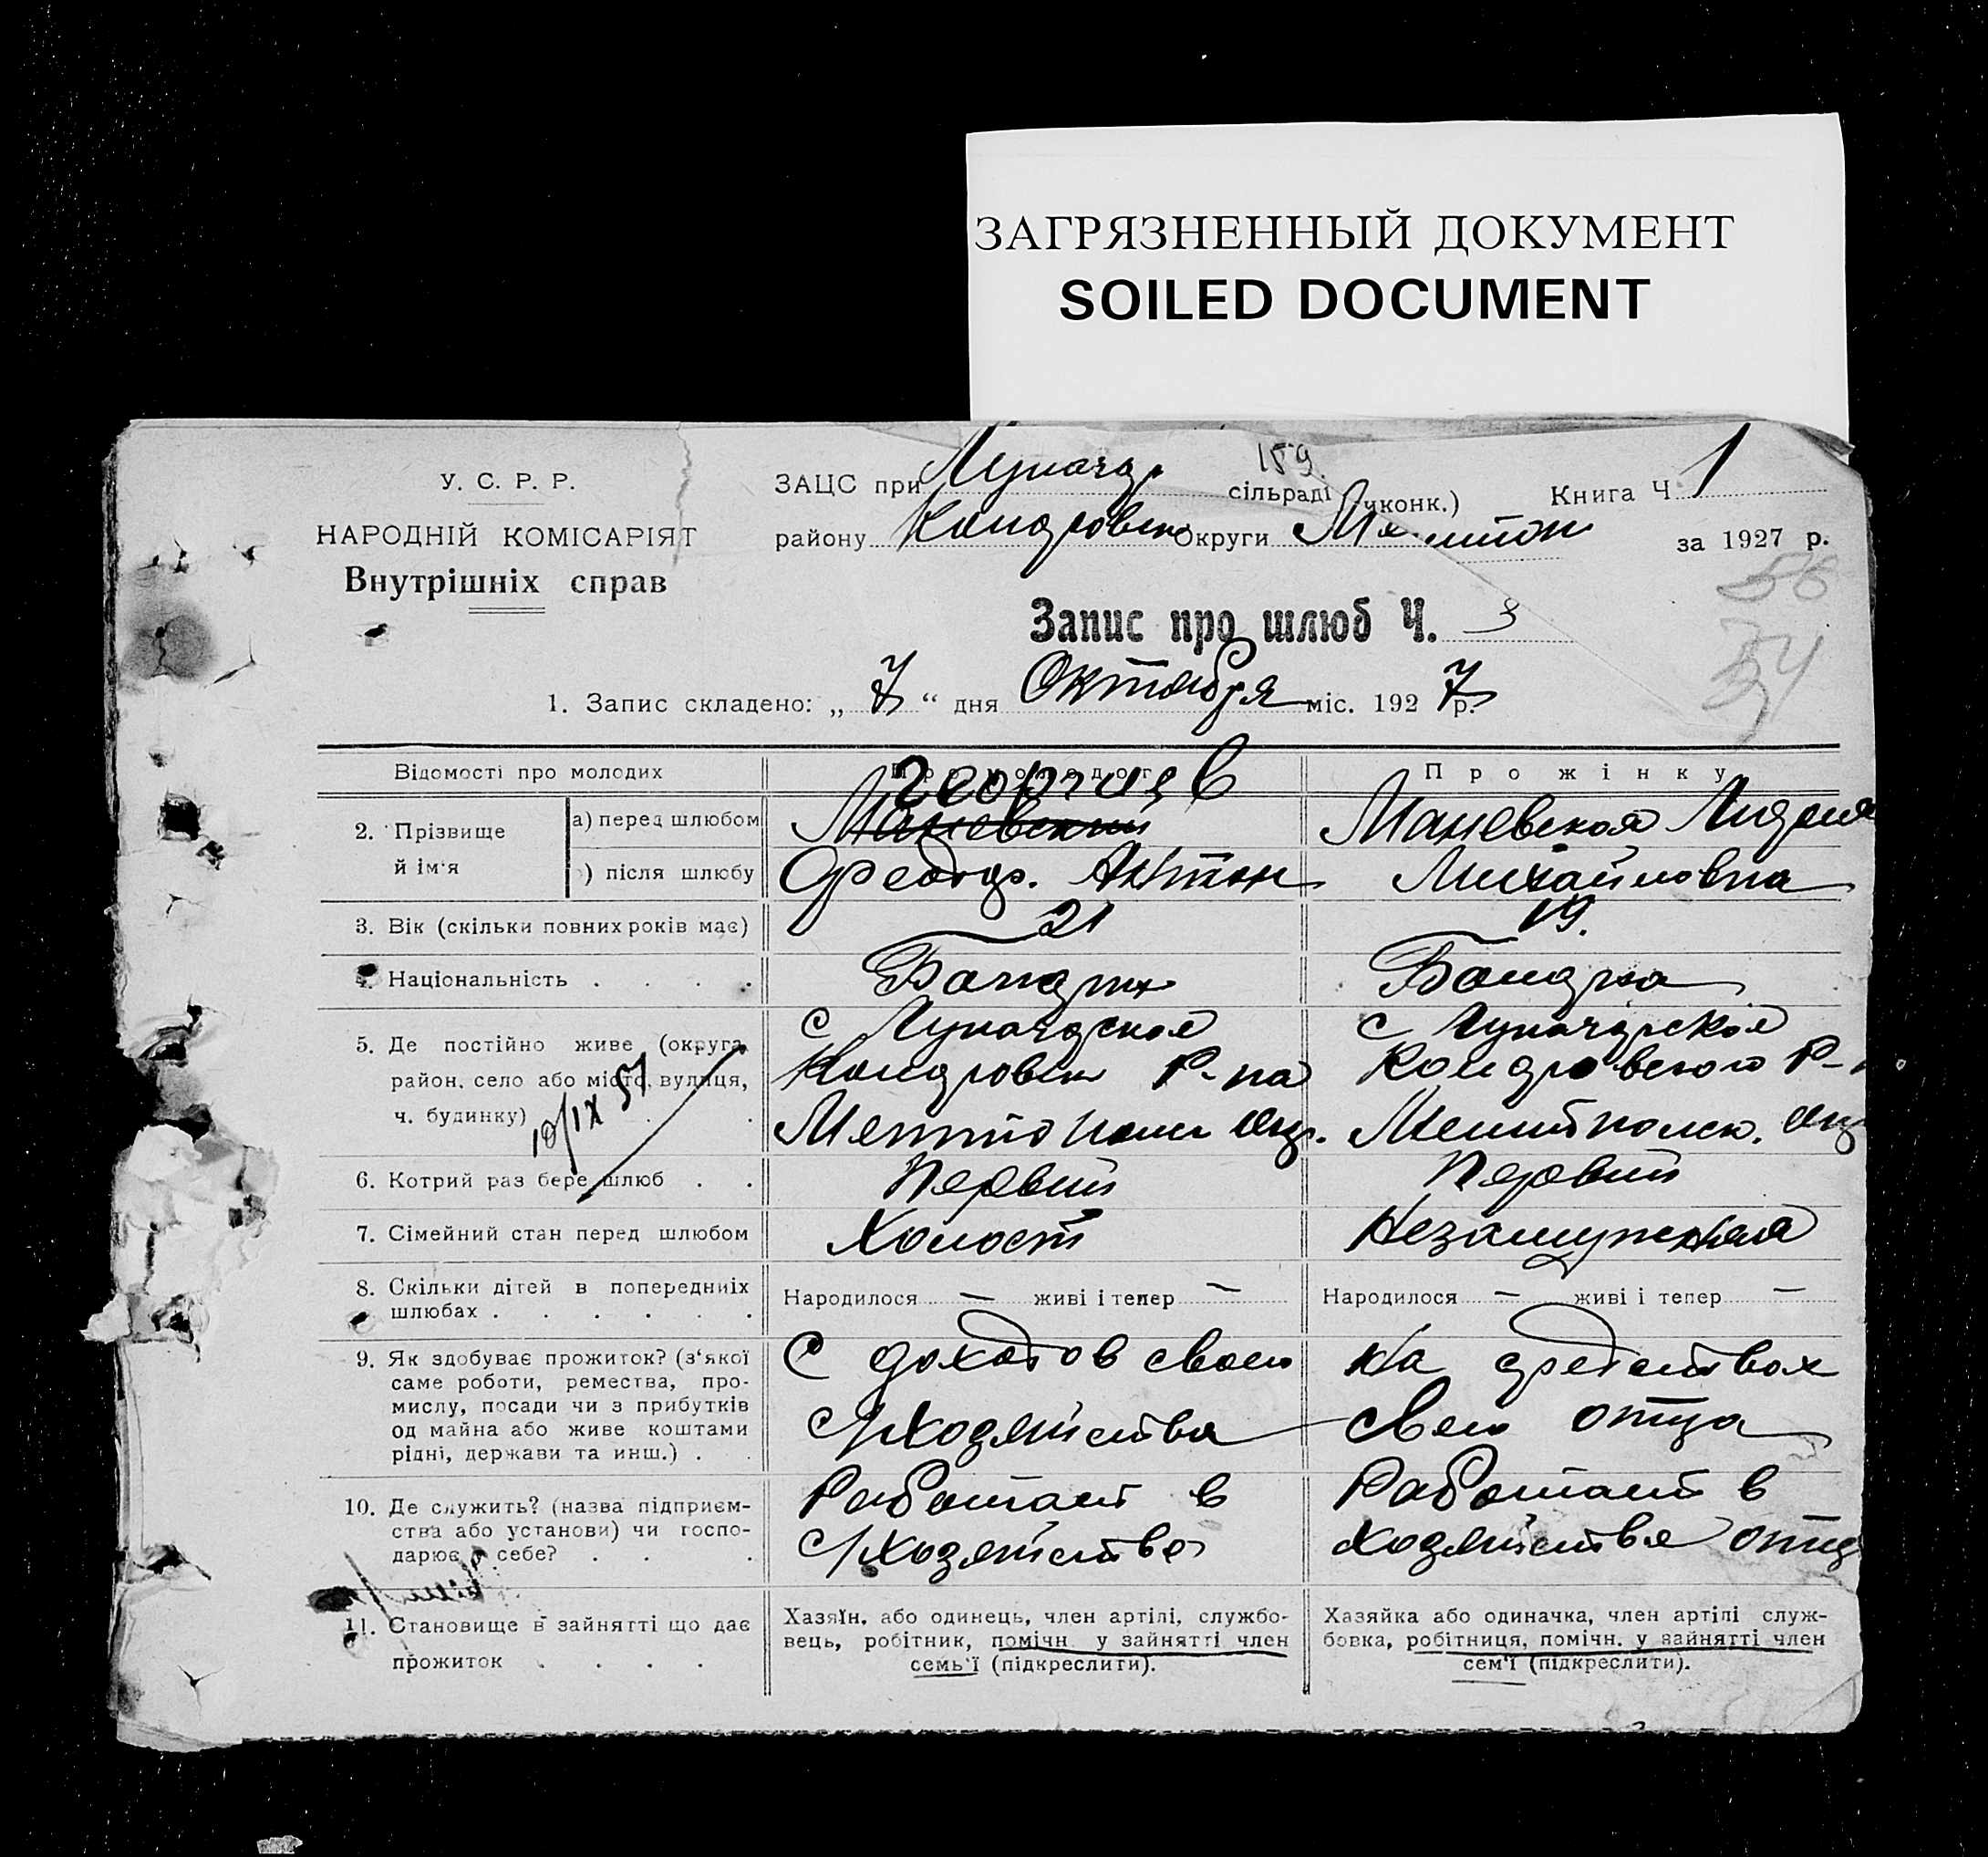 ЗАГРЯЗНЕННЫЙ ДОКУМЕНТ
SOILED DOCUMENT
159
У. С. Р. Р.
НАРОДНІЙ КОМІСАРІЯТ
Внутрішніх справ
ЗАЦС при Луначар сільраді чконк.) Книга Ч 1
району Округи за 1927 р.
56
34
Запис про шлюб Ч. 3
1. Запис складено: „ 7 “ дня Октября міс. 1927 р.
Відомості про молодих
Про жінку
2. Прізвище й ім'я
а) перед шлюбом
) після шлюбу
Георгиев
Маневский
Феодор. Антон
Маневская Лидия
Михайловна
3. Вік (скільки повних років має) 21 19.
Національність . . . .
5. Де постійно живе (округа,
район, село або місто, вулиця,
ч. будинку)
10/IX 51
с Луначарское
Р-на
с Луначарское
Р-
6. Котрий раз бере шлюб . . Первий Первий
7. Сімейний стан перед шлюбом Холост Незамужняя
8. Скільки дітей в попередніх
шлюбах . . . . . .
Народилося — живі і тепер —
Народилося — живі і тепер —
9. Як здобуває прожиток? (з'якої
саме роботи, ремества, про-
мислу, посади чи з прибутків
од майна або живе коштами
рідні, держави та инш.) . .
С доходов своего
С/хозяйства
На средствах
свего отца
10. Де служить? (назва підприєм-
ства або установи) чи госпо-
дарює у себе? . . .
Работает в
С/хозяйстве
Работает в
хозяйстве отца
11. Становище в зайнятті що дає
прожиток . . . .
Хазяїн, або одинець, член артілі, службо-
вець, робітник, помічн. у зайнятті член
семь'ї (підкреслити).
Хазяйка або одиначка, член артілі служ-
бовка, робітниця, помічн. у зайнятті член
сем'ї (підкреслити).